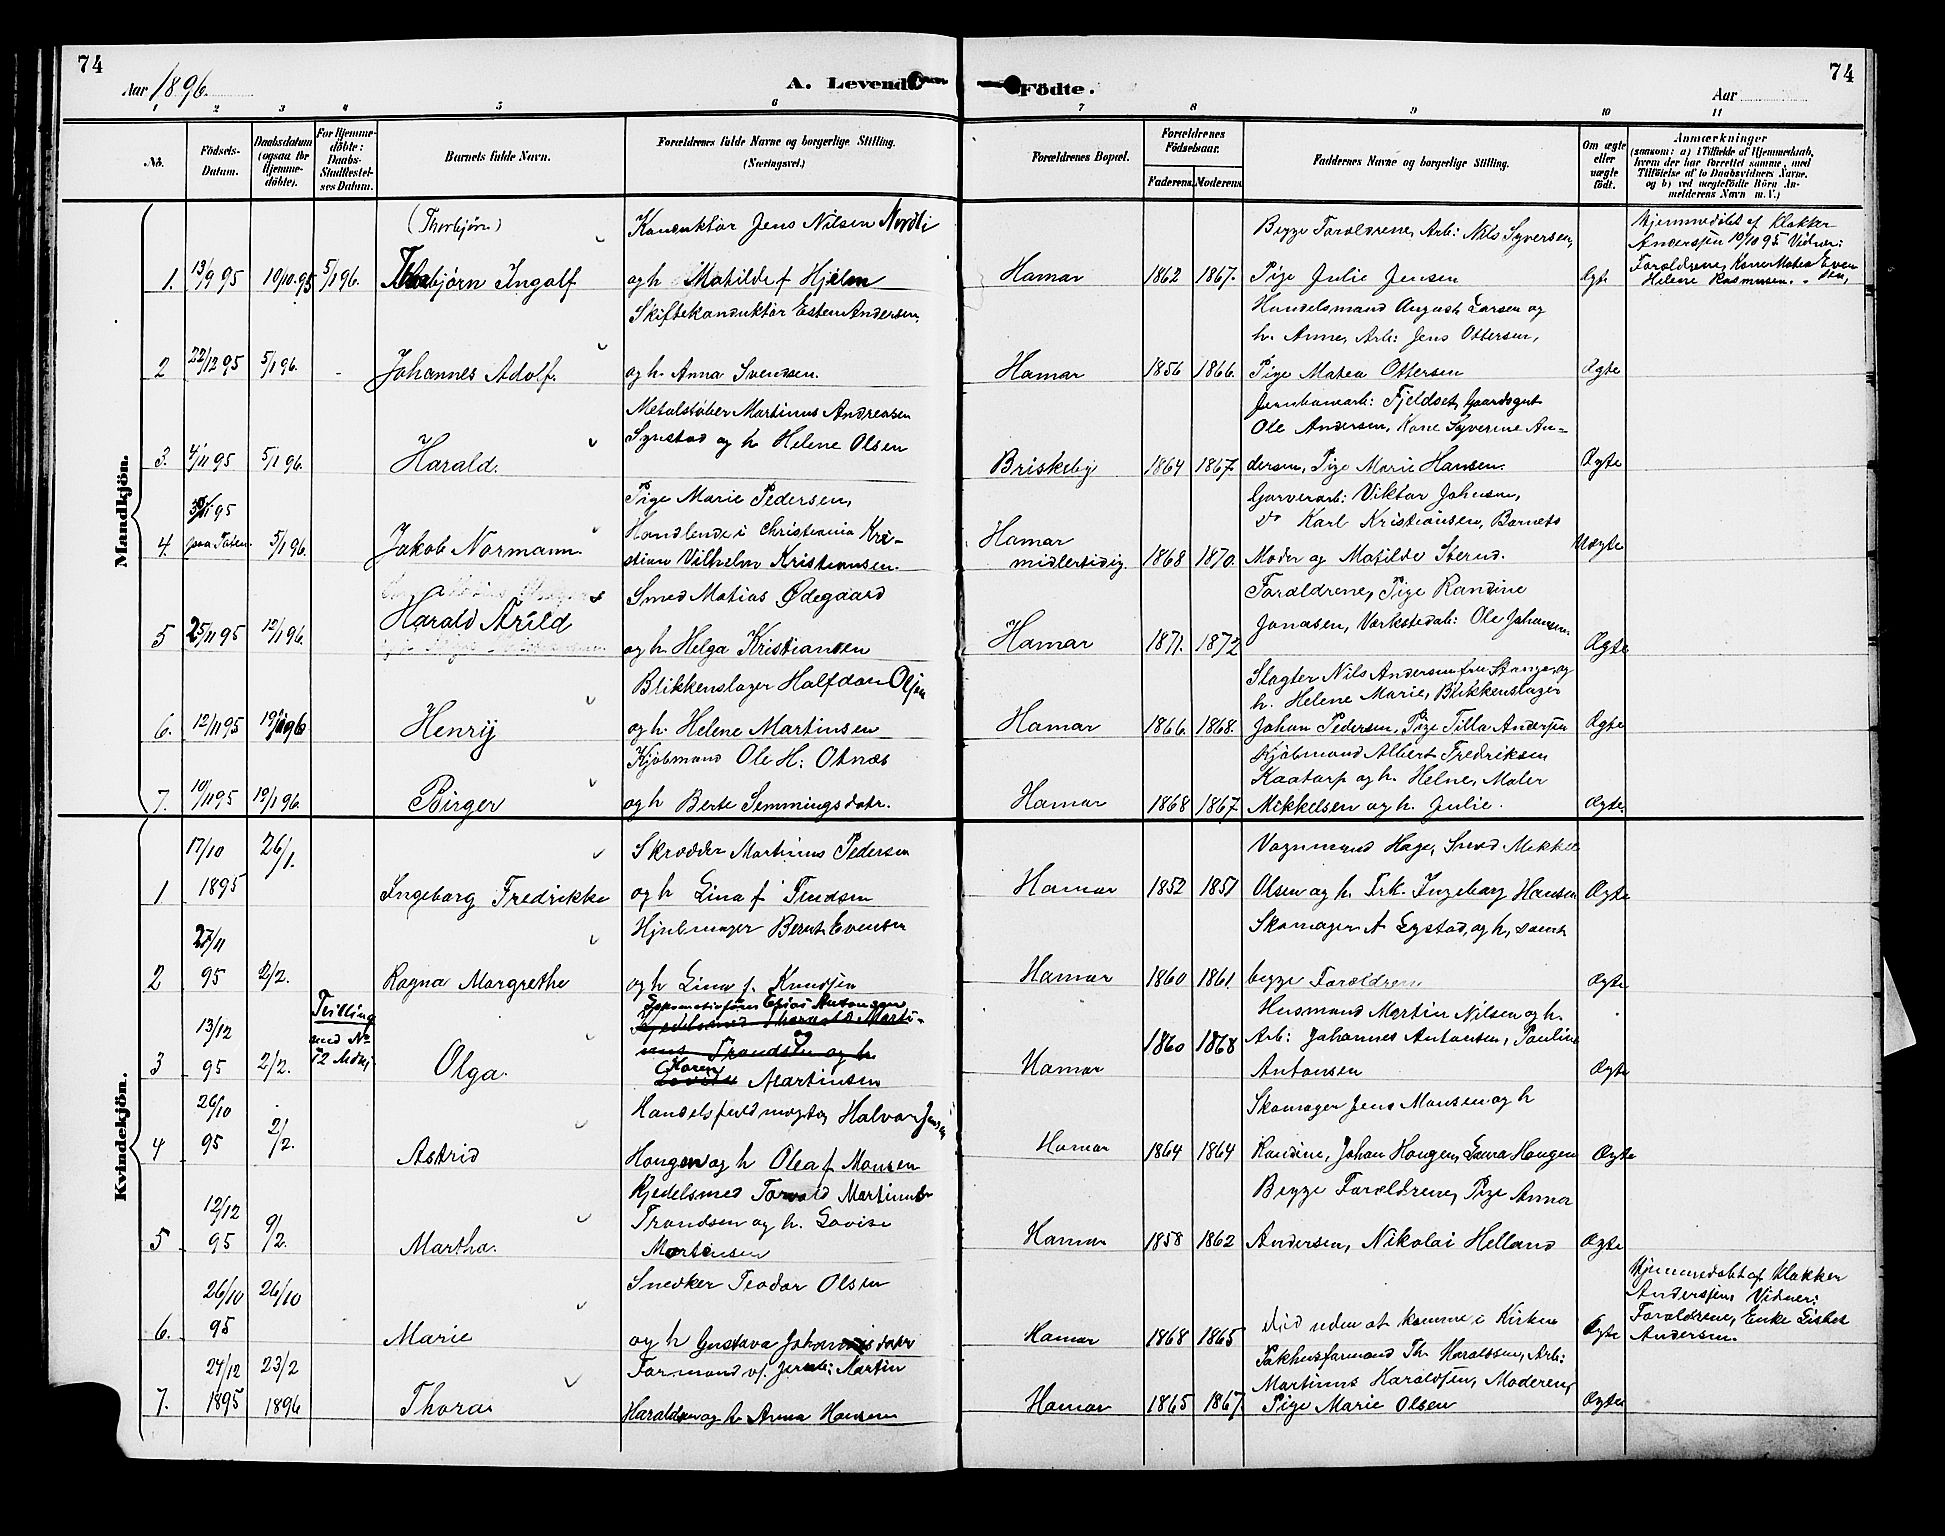 74
Aar 1896.
A. Levende
Födte.
Aar
74
1 2 3 4 5 6 7 8 9 10 11
No.
Födsels-Datum.
Daabsdatum (ogsaa for Hjemme-döbte).
For Hjemme-döbte: Daabs-Stadfæstel-ses Datum.
Barnets fulde Navn.
Forældrenes fulde Navne og borgerlige Stilling. (Næringsvei.)
Forældrenes Bopæl.
Forældrenes Födselsaar.
Faderens. Moderens.
Faddernes Navne og borgerlige Stilling.
Om ægte eller uægte födt.
Anmærkninger
(saasom: a) i Tilfælde af Hjemmedaab, hvem der har forrettet samme, med Tilföielse af to Daabsvidners Navne, og b) ved uægtefödte Börn Anmelderens Navn m. V.)
Mandkjön.
(Thorbjørn) Konduktør Jens Nilsen Nordli Begge Forældrene, Arb: Nils Syversen, Hjemmedøbt af Klokker
Andersen 10/10 95 Vidner:
1. 13/9 95 10/10 95 5/1 96. Thorbjørn Ingolf og h Matilde f Hjelm Hamar 1862 1867. Pige Julie Jensen Ægte Forældrene, Kone Matea Even
sen, Helene Rasmussen.
Skiftekonduktør Esten Andersen, Handelsmand August Larsen og
h. Anne, Arb: Jens Ottersen,
2 22/12 95 5/1 96. - Johannes Adolf. og h. Anna Svendsen. Hamar 1856 1866. Pige Matea Ottersen Ægte
Metalstøber Martinus Andreasen Jernbanearb: Fjeldset, Gaardsgut
Synstad og h Helene Olsen Ole Andersen, Kone Syverine An-
3. 4/11 95 5/1 96. Harald. Briskeby 1864 1867 dersen, Pige Marie Hansen. Ægte
Pige Marie Pedersen, Garverarb: Viktor Johnsen,
Handlende i Christiania Kri- Do Karl Kristiansen, Barnets
4. 95 paa Toten. 5/1 96. Jakob Normann. stian Vilhelm Kristiansen. Hamar midlertidig. 1868 1870. Moder og Matilde Sterud. Uægte
Smed Matias Ødegaard Forældrene, Pige Randine
Jonasen, Værkstedarb: Ole Johansen.
5 25/11 95 12/1 96. Harald Arild og h. Helga Kristiansen Hamar 1871. 1872 Ægte
Blikkenslager Halfdan Olsen Slagter Nils Andersen fra Stange og
h. Helene Marie, Blikkenslager
6. 12/11 95 19/1 96 Henrij og h. Helene Martinsen Hamar 1866. 1868. Johan Pedersen, Pige Tilla Andersen Ægte
Kjøbmand Ole H: Otnæs Kjøbmand Albert Fredriksen
Kaatorp og h. Helne, Maler
7. 10/11 95 19/1 96. Birger og h Berte Semmingsdatr. Hamar 1868 1867 Mikkelsen og h. Julie. Ægte.
Kvindekjön.
17/10 26/1. Skrædder Martinus Pedersen Vognmand Hage, Smed Mikkel
1 1895 Ingeborg Fredrikke og h Lina f Hamar 1852 1851 Olsen og h. Frk. Ingeborg Hansen Ægte
27/11 Hjulmager Bernt Evensen Skomager A Lystad, og h, samt
2 95 2/2. Ragna Margrethe og h Lina f. Knudsen Hamar 1860 1861. begge Forældrene Ægte
Tvilling med No
13/12 Lokomotivfører Antonsen Husmand Martin Nilsen og h.
Kjedelsmed Thorvald Marti-
nus Trondsen og h. 1860 1868 Arb: Johannes Antonsen, Pauline
3 95 2/2. Olga. og Karen Lovise Martinsen Hamar Antonsen Ægte
26/10 Handelsfuldmægtig Halvor Jensen Skomager Jens Monsen og h
4 95 2/2. Astrid Hougen og h Olea f Monsen Hamar 1864 1864 Randine, Johan Hougen, Laura Hougen Ægte
12/12 Kjedelsmed Torvald Martinus Begge Forældrene, Pige Anna
Trondsen og h. Lovise
5 95 9/2. Martha. Martinsen Hamar 1858 1862 Andersen, Nikolai Helland Ægte
26/10 26/10 Snedker Teodor Olsen Hjemmedøbt af Klokker
Andersen, Vidner:
6. 95 Marie og h Gustava Johannisdatr Hamar 1868 1865 død uden at komme i Kirken Ægte Forældrene, Enke Lisbet
Andersen.
24/12 23/2 Formand v/. Jernb: Martin Pakhusformand Th. Haraldsen, Arb:
Martinus Haraldsen, Moderen,
7. 1895 1896 Thora Haraldsen og h. Anna Hansen Hamar 1865 1867 Pige Marie Olsen Ægte